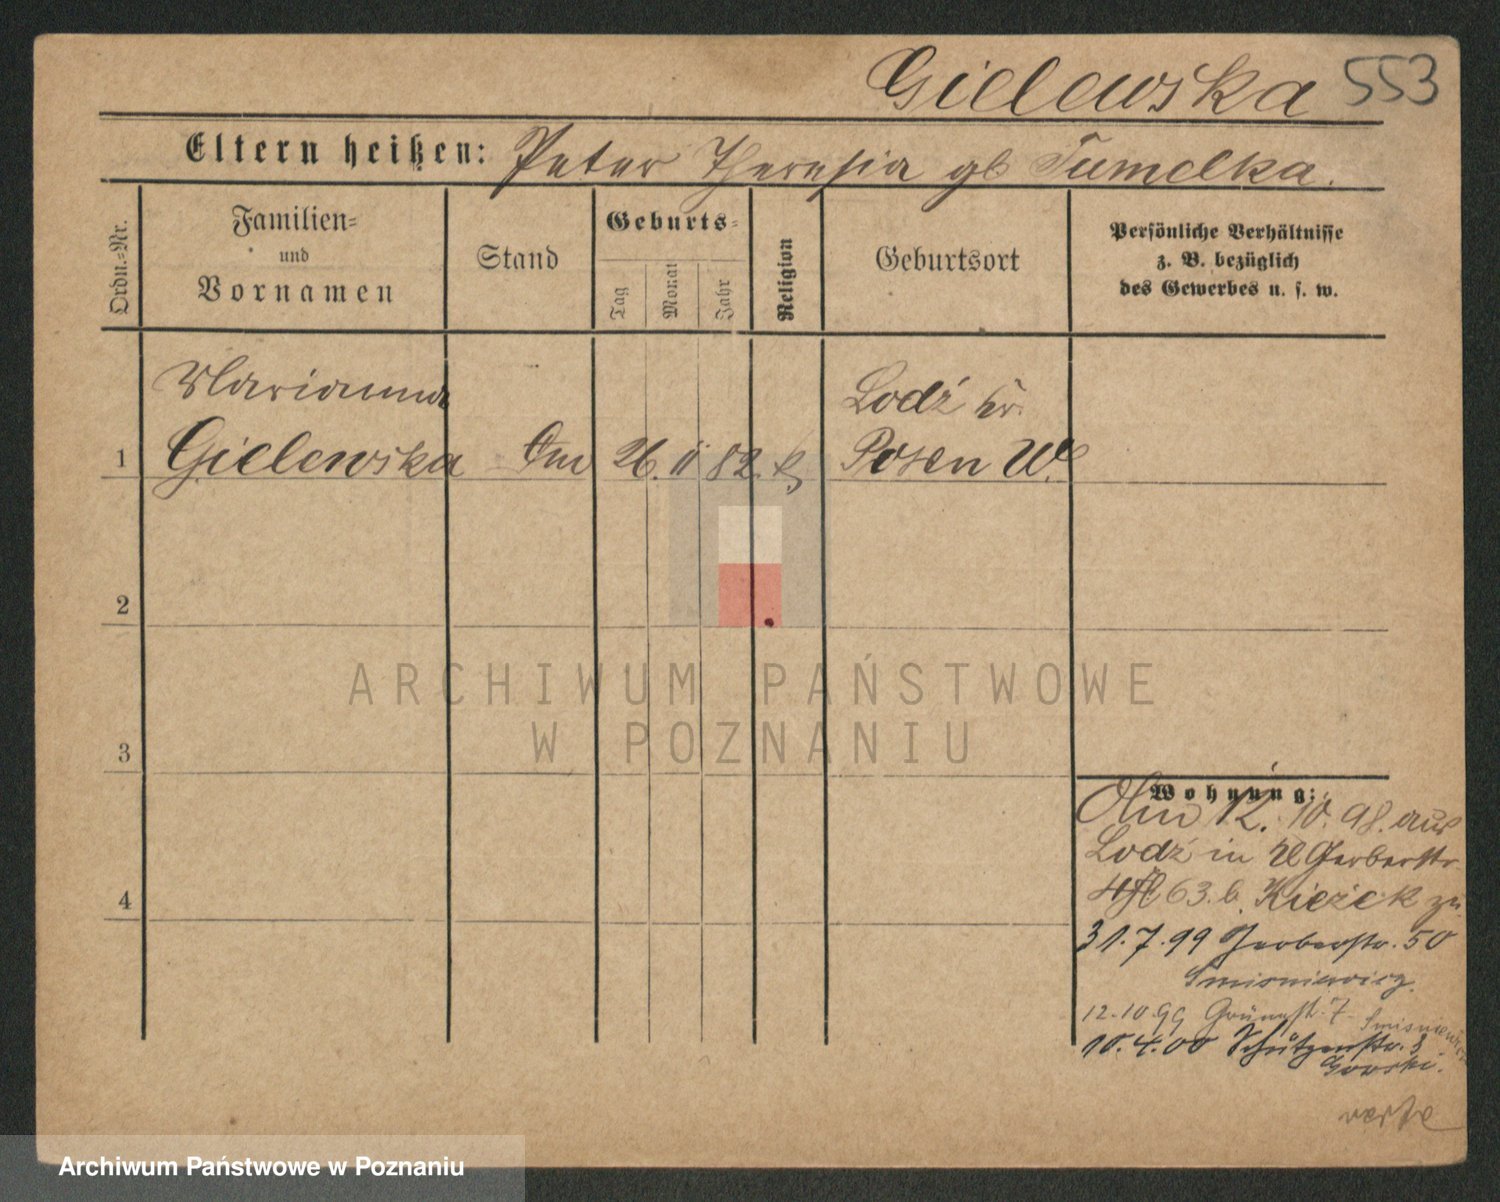 Gielewska 553
Eltern heißen: Peter Theresia gb Tumelka.
Ordn.=Nr.
Familien=
und
Vornamen
Stand
Geburts=
Tag
Monat
Jahr
Religion
Geburtsort
Persönliche Verhältnisse
z. B. bezüglich
des Gewerbes u. s. w.
Marianna
Lodź Kr.
1 Gielewska 26. 11 82. k Posen W.
2
3
4
ARCHIWUM PAŃSTWOWE
W POZNANIU
Wohnung:
12. 10. 98. aus
Lodź in Gerberstr
63. b. Kiezek zu
31.7.99 Gerberstr. 50
Smisniewicz.
12.10.99 Grünestr. 7 Smisniewicz
10.4.00 Schützenstr. 3
Gorski.
verte
Archiwum Państwowe w Poznaniu